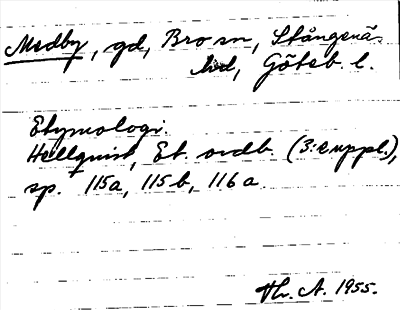 Medby, gd, Bro sn, Stångenäs
hd, Göteb. l.
Etymologi.
Hellquist, Et. ordb. (3:e uppl.),
sp. 115a, 115b, 116a.
Hr. A. 1955.